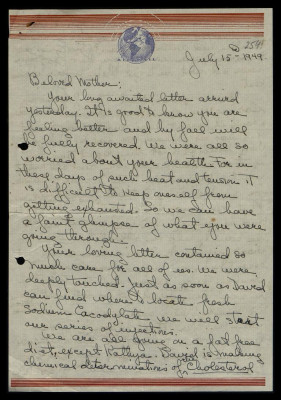 2544
July 15 - 1949
Beloved Mother:
Your long awaited letter arrived
yesterday. It is good to know you are
feeling better and by fall will
be fully recovered. We were all so
worried about your health for in
these days of such heat and tension it
is difficult to keep oneself from
getting exhausted. So we can have
a faint glimpse of what you were
going through.
Your loving letter contained so
much care for all of us. We were
deeply touched. Just as soon as David
can find where to locate fresh
Sodium Cacodylate we will start
our series of injections.
We are all going on a fat free
diet, except Kathya. David is making
chemical determinations of Cholesterol